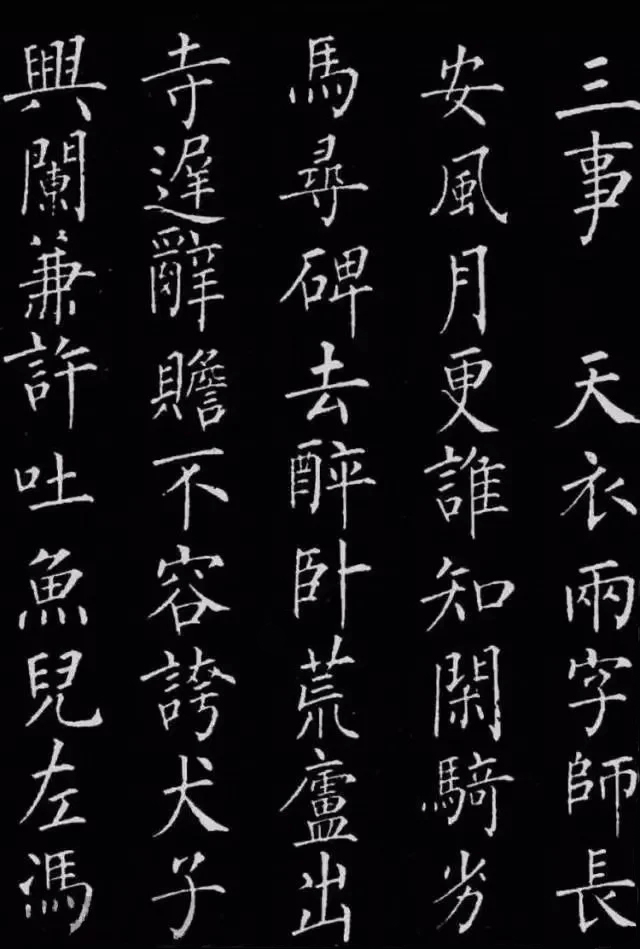 三事　天衣兩字師長
安風月更誰知閑騎劣
馬尋碑去酔卧荒廬出
寺遲辭贍不容誇犬子
興闌兼許吐魚兒左馮